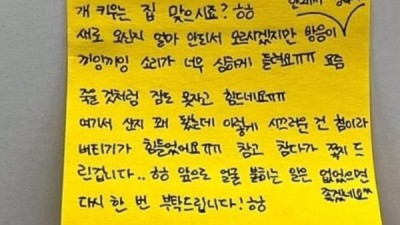 개 키우는 집 맞으시죠? ㅎㅎ
새로 오신지 얼마 안되서 모르시겠지만 방음이
끼잉끼잉 소리가 너무 심하게 들려요ㅠㅠ 요즘
죽을 것처럼 잠도 못자고 힘드네요ㅠㅠ
여기서 산지 꽤 됐는데 이렇게 시끄러운 건 처음이라
버티기가 힘들었어요ㅠㅠ 참고 참다가 쪽지 드
린겁니다.. ㅎㅎ 앞으로 얼굴 붉히는 일은 없었으면
좋겠네요^^
다시 한 번 부탁드립니다! ㅎㅎ